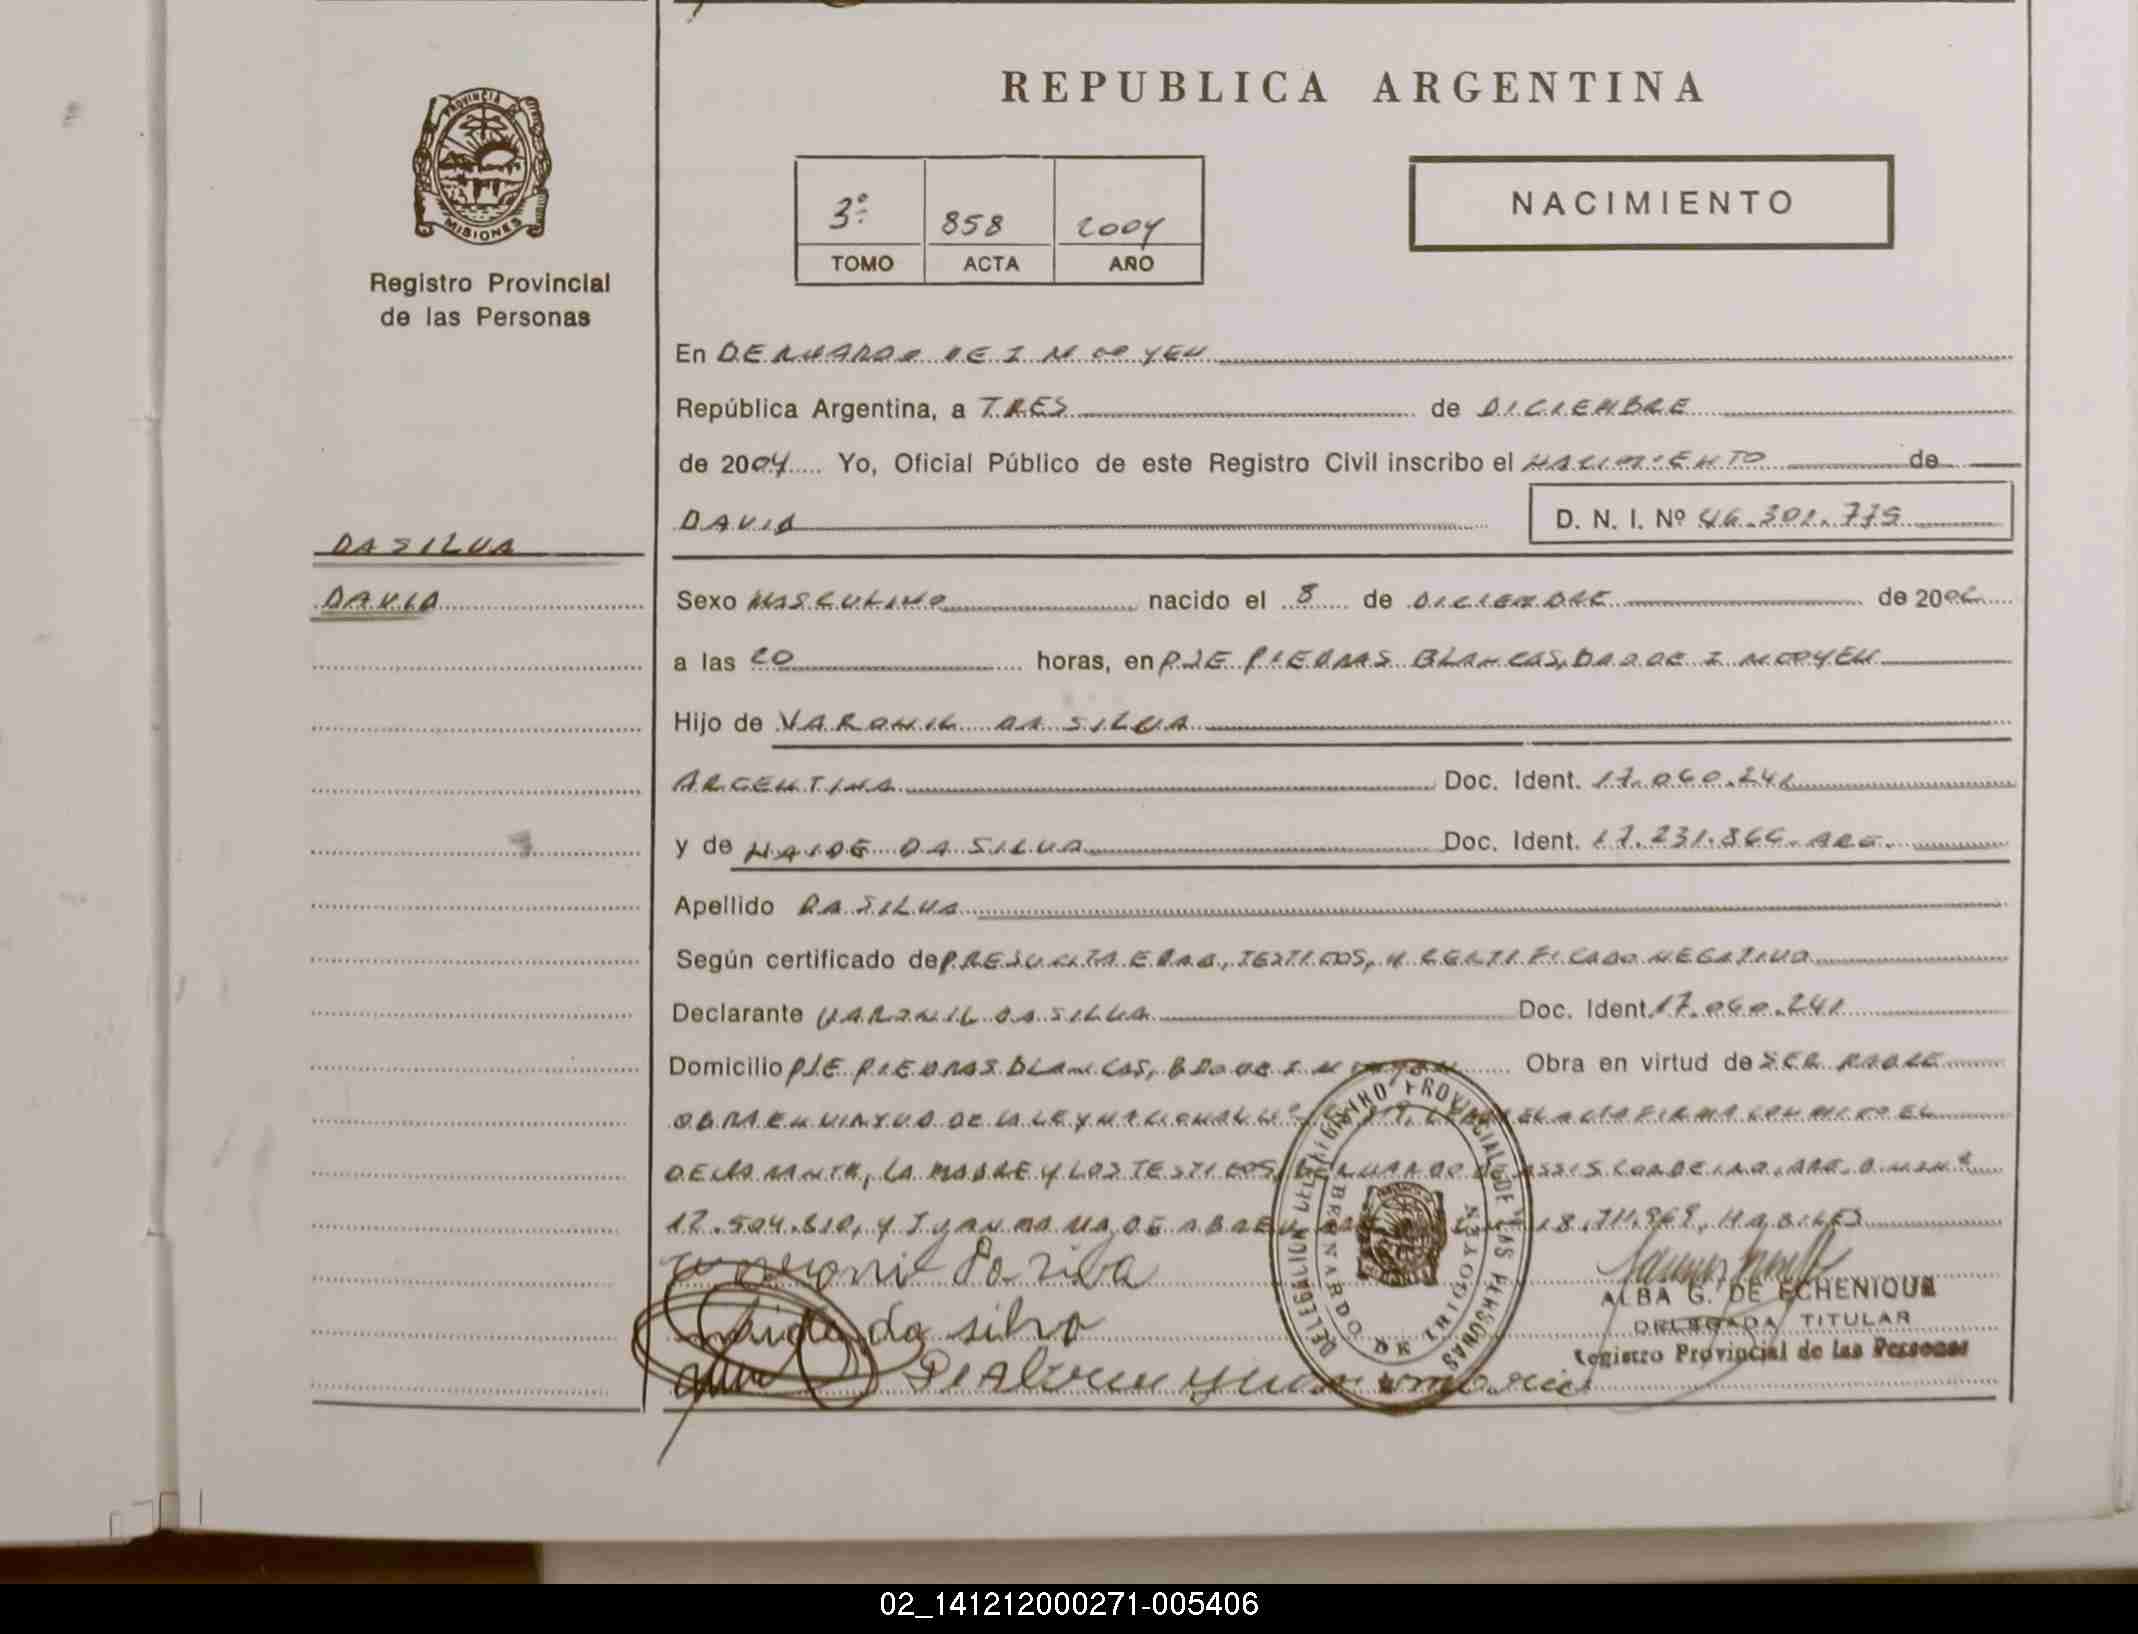 REPUBLICA ARGENTINA
PROVINCIA DE MISIONES
Registro Provincial
de las Personas
3º 858 2004
TOMO ACTA AÑO
NACIMIENTO
En BERNARDO DE IRIGOYEN
República Argentina, a TRES de DICIEMBRE
de 2004 Yo, Oficial Público de este Registro Civil inscribo el NACIMIENTO de
DAVID D. N. I. Nº 46.301.779
DA SILVA
DAVID
Sexo MASCULINO nacido el 8 de DICIEMBRE de 200
a las 20 horas, en PJE PIEDRAS BLANCAS, BDO DE IRIGOYEN
Hijo de VARONIL DA SILVA
ARGENTINA Doc. Ident. 17.060.241
y de NAIDE DA SILVA Doc. Ident. 17.231.866. ARG.
Apellido DA SILVA
Según certificado de PRESUNTA EDAD, TESTIGOS, Y CERTIFICADO NEGATIVO
Declarante VARONIL DA SILVA Doc. Ident. 17.060.241
Domicilio PJE PIEDRAS BLANCAS, BDO DE IRIGOYEN Obra en virtud de SER PADRE
OBRA EN VIRTUD DE LA LEY NACIONAL Nº EL ACTA FIRMA CONMIGO EL
DECLARANTE, LA MADRE Y LOS TESTIGOS, DE ASSIS ARG. D.N.I.Nº
12.504.810, Y DE ABREU 18.711.969, HABILES
da silva
DELEGACION DEL REGISTRO PROVINCIAL DE LAS PERSONAS
BERNARDO DE IRIGOYEN
ALBA G. DE ECHENIQUE
DELEGADA TITULAR
Registro Provincial de las Personas
02_141212000271-005406